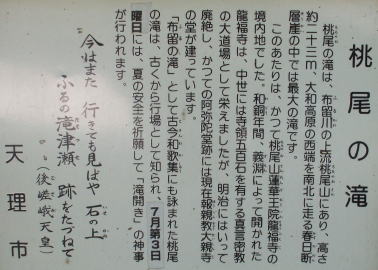 桃尾の滝
桃尾の滝は、布留川の上流桃尾山にあり、高さ
約二十三m、大和高原の西端を南北に走る春日断
層崖の中では最大の滝です。
このあたりは、かつて桃尾山蓮華王院龍福寺の
境内地でした。和銅年間、義淵によって開かれた
龍福寺は、中世には寺領五百石を有する真言密教
の大道場として栄えましたが、明治にはいって
廃絶し、かつての阿弥陀堂跡には現在報親教大親寺
の堂が建っています。
「布留の滝」として古今和歌集にも詠まれた桃尾
の滝は、古くから行場として知られ、7月第3日
曜日には、夏の安全を祈願して「滝開き」の神事
が行われます。
"今はまた 行きても見ばや 石の上
ふるの滝津瀬 跡をたづねて"
(後嵯峨天皇)
天理市